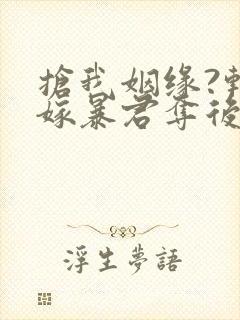 搶我姻缘?轉
嫁暴君奪後
浮生夢語